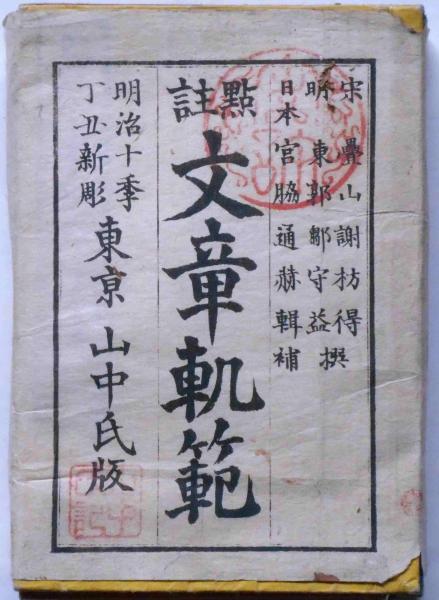 宋疊山謝枋得
明東郭鄒守益撰
日本宮脇通赫輯補
點註
文章軌範
明治十季
丁丑新彫
東京山中氏版